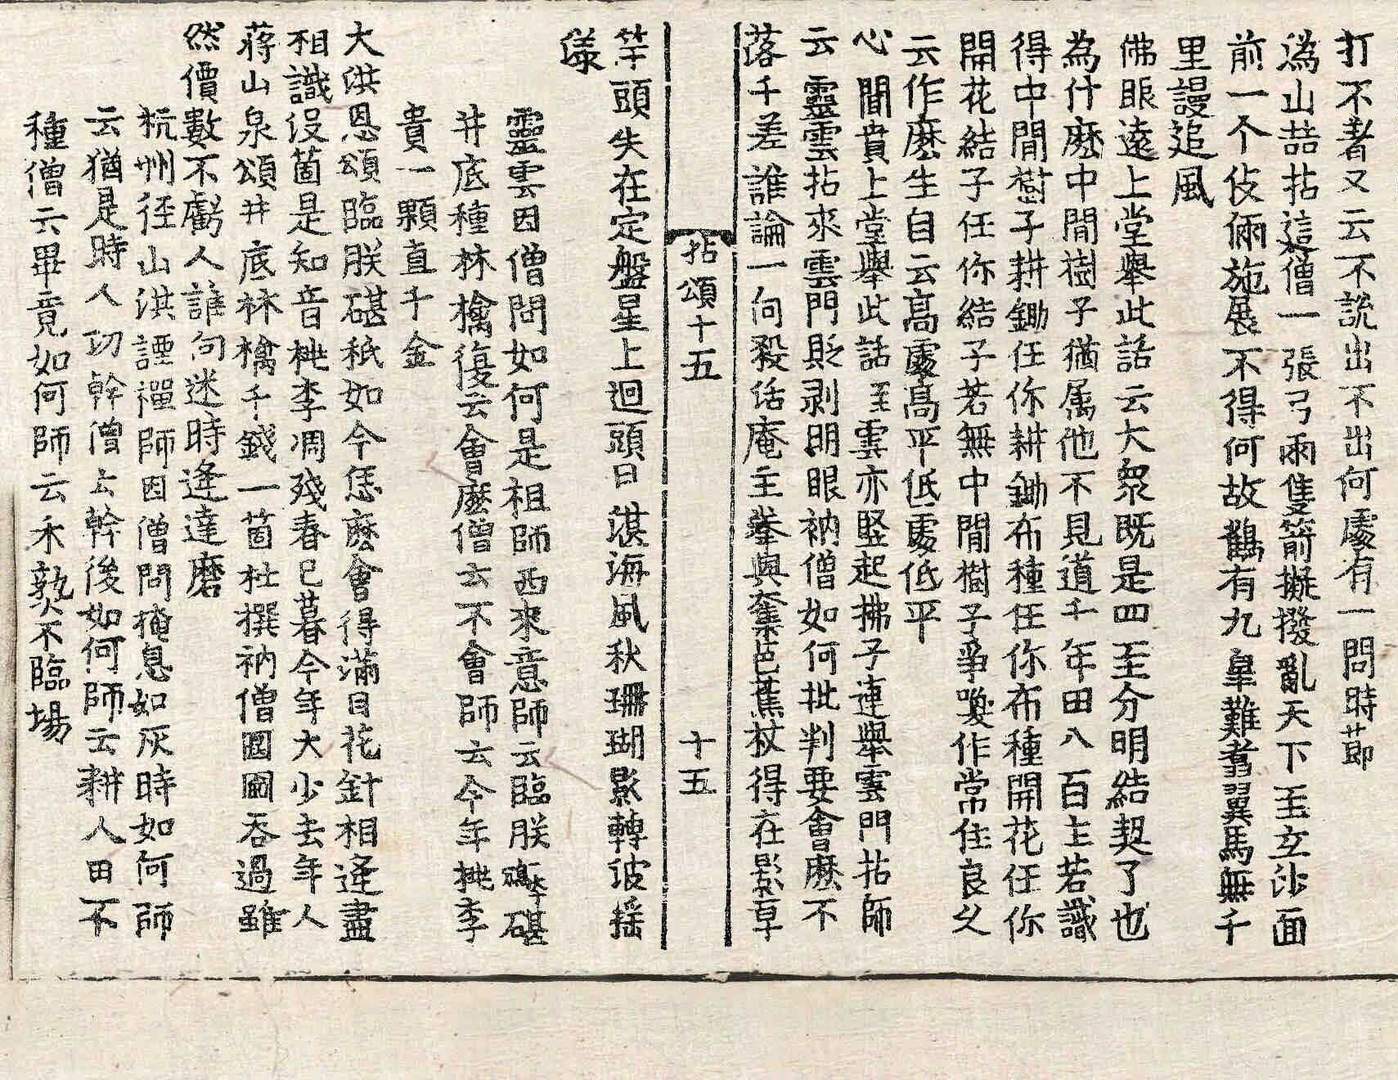 打不著又云不說出不出何處有一問時節
溈山喆拈這僧一張弓兩隻箭擬撥亂天下至立沙面
前一个伎倆施展不得何故鶴有九皐難翥翼馬無千
里謾追風
佛眼遠上堂舉此話云大衆既是四至分明結契了也
為什麽中間樹子猶属他不見道千年田八百主若識
得中間樹子耕鋤任你耕鋤布種任你布種開花任你
開花結子任你結子若無中間樹子爭喚作常住良久
云作麽生自云高處高平低處低平
心聞賁上堂舉此話至雲亦竪起拂子連舉雲門拈師
云靈雲拈來雲門貶剥明眼衲僧如何批判要會麽不
落千差誰論一向殺活庵主拳與奪芭蕉杖得在影草
拈頌十五
十五
竿頭失在定盤星上迴頭日湛海風秋珊瑚影轉波揺
漾
靈雲因僧問如何是祖師西來意師云臨朕碪
井底種林檎復云會麽僧云不會師云今年桃李
貴一顆直千金
大洪恩頌臨朕碪秖如今恁麽會得滿目花針相逢盡
相識没箇是知音桃李凋殘春已暮今年大少去年人
蔣山泉頌井底林檎千錢一箇杜撰衲僧圓圇吞過雖
然價數不虧人誰向迷時逢達磨
杭州徑山洪諲禪師因僧問掩息如灰時如何師
云猶是時人功幹僧云幹後如何師云耕人田不
種僧云畢竟如何師云禾熟不臨場